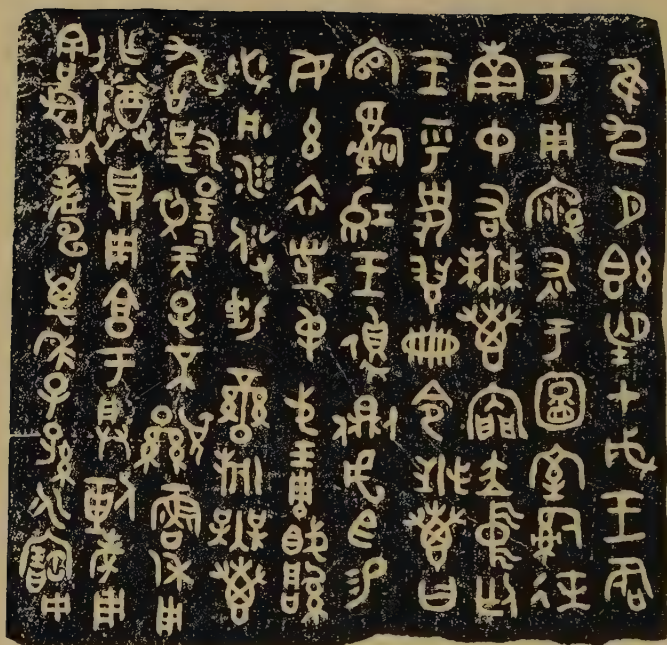 隹九月既望甲戌王各
于周廟述于圖室𤔲徒
南中右無叀內門立中廷
王乎史翏冊令無叀曰
官𤔲王遉側虎臣易
女玄衣黹屯戈琱胾厚
必彤沙攸勒䜌旂無叀
敢對揚天子不顯魯休用
乍尊鼎用享于朕剌考用
割眉壽萬年子孫永寶用